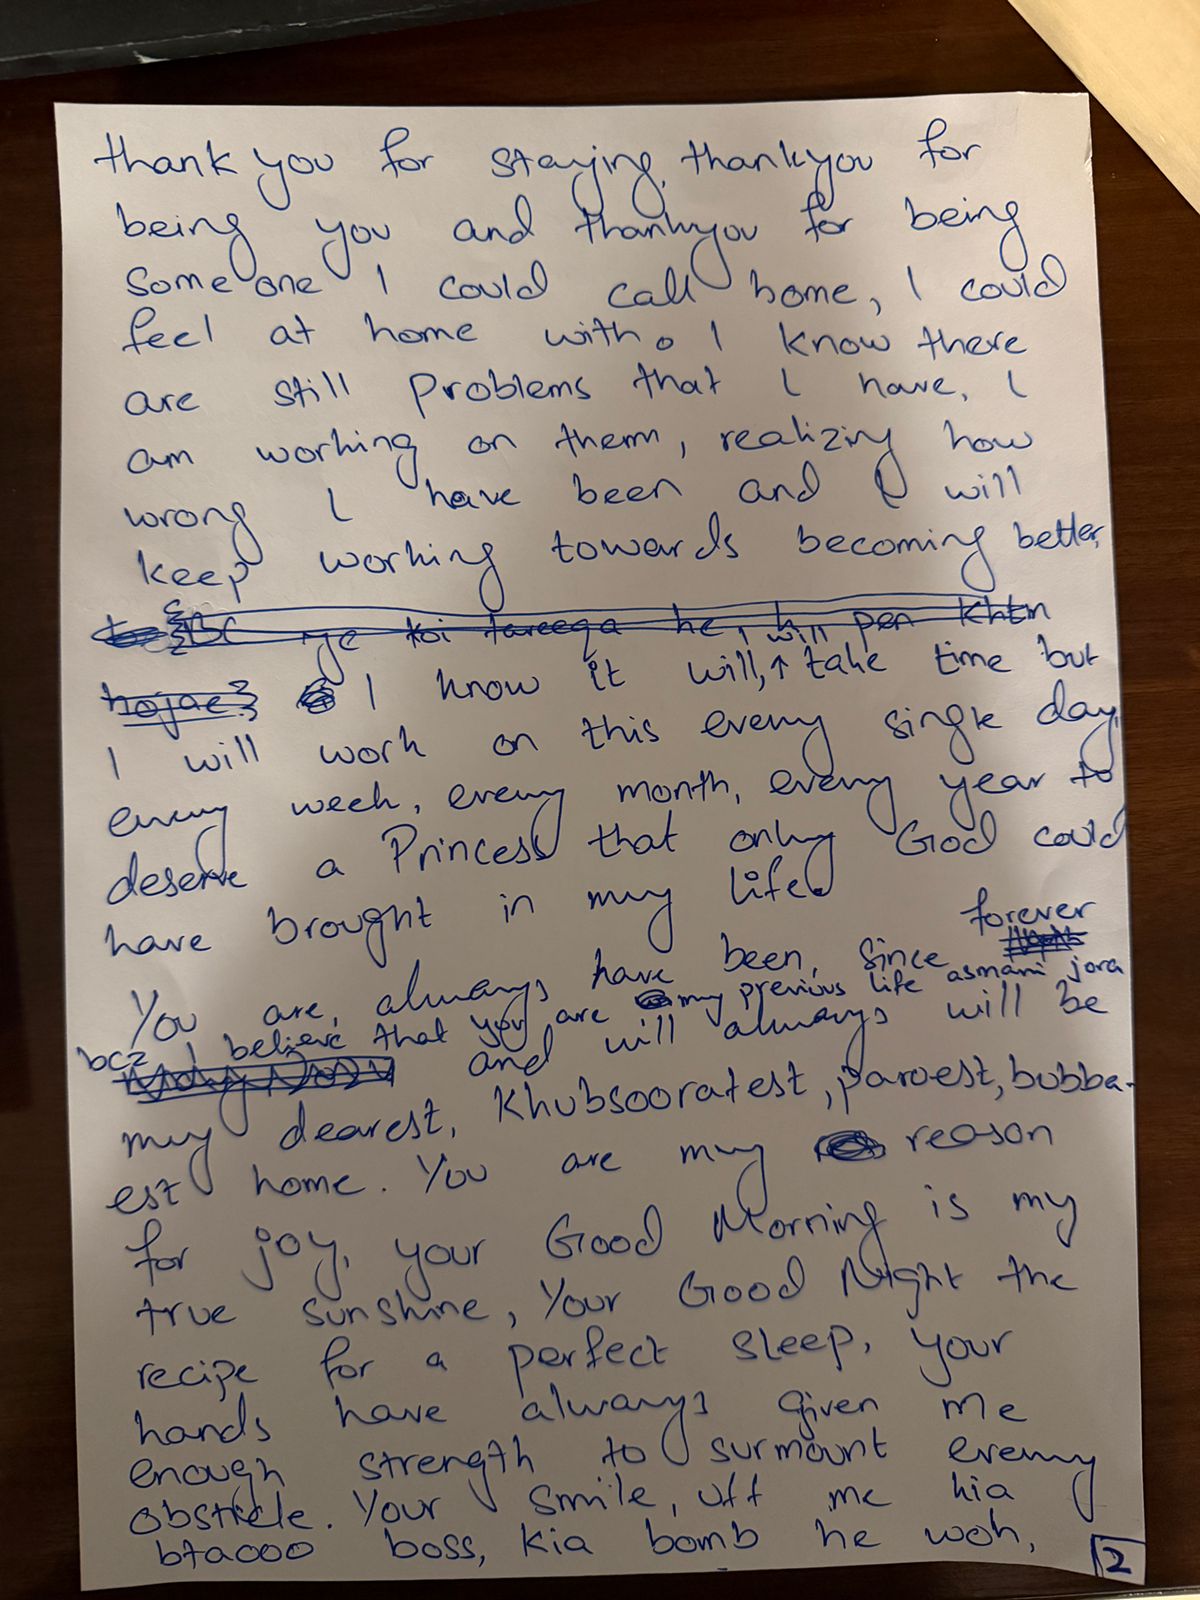 thank you for staying, thankyou for
being you and thankyou for being
someone I could call home, I could
feel at home with. I know there
are still problems that I have, I
am working on them, realizing how
wrong I have been and I will
keep working towards becoming better,
Bc ye koi tareeqa he, pen khtm
hojae? I know it will, ↑ I will take time but
I will work on this every single day,
every week, every month, every year to
deserve a Princess that only God could
have brought in my life.
You are, always have been, since forever
bcz I believe that you are my previous life asmani jora
and will always will be
my dearest, Khubsooratest, paroest, bubba-
est home. You are my reason
for joy, your Good Morning is my
true sunshine, Your Good Night the
recipe for a perfect sleep, your
hands have always given me
enough strength to surmount every
obstacle. Your smile, uff me kia
btaooo boss, kia bomb he woh,
2